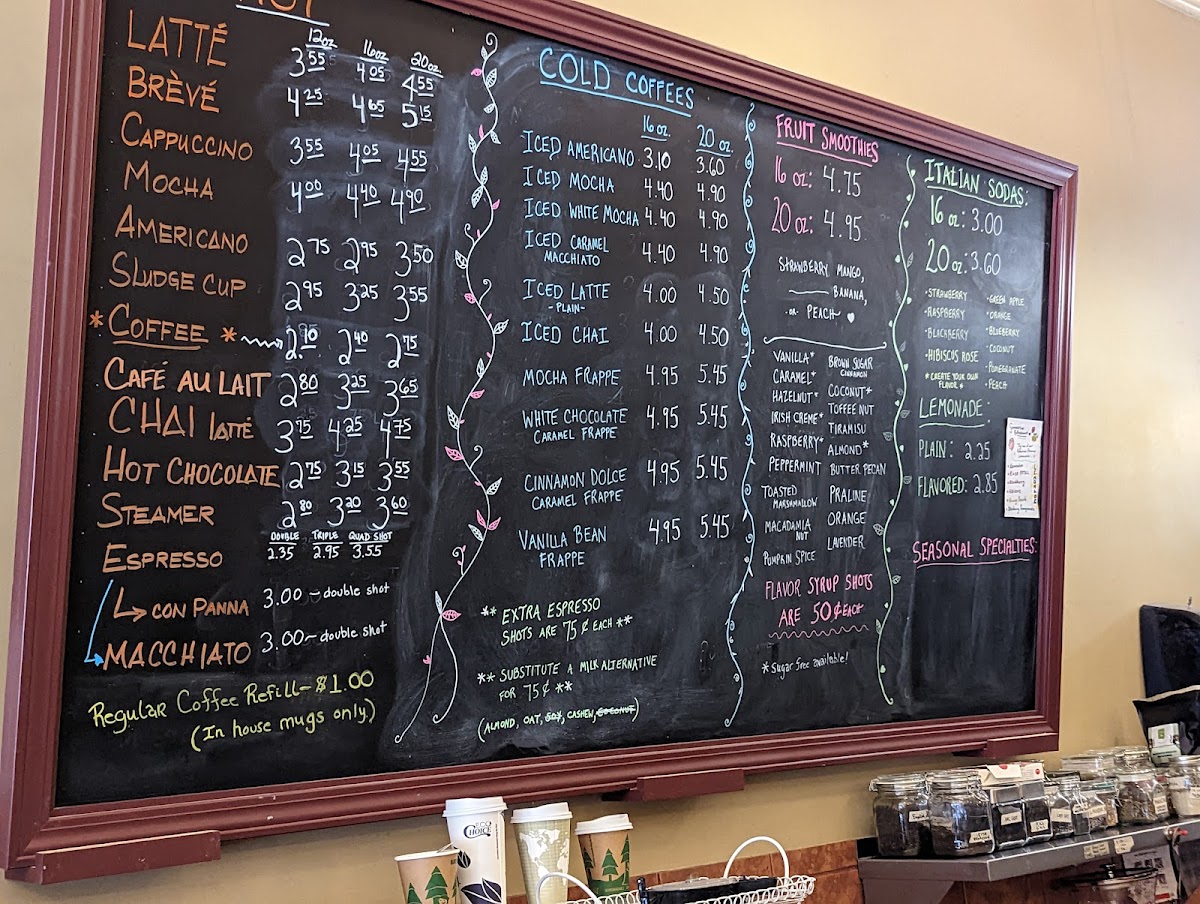 HOT
12oz 16oz 20oz
LATTÉ 3.55 4.05 4.55
BRÈVÉ 4.25 4.65 5.15
CAPPUCCINO 3.55 4.05 4.55
MOCHA 4.00 4.40 4.90
AMERICANO 2.75 2.95 3.50
SLUDGE CUP 2.95 3.25 3.55
* COFFEE * 2.10 2.40 2.75
CAFÉ AU LAIT 2.80 3.25 3.65
CHAI latté 3.75 4.25 4.75
HOT CHOCOLATE 2.75 3.15 3.55
STEAMER 2.80 3.20 3.60
DOUBLE TRIPLE QUAD SHOT
ESPRESSO 2.35 2.95 3.55
CON PANNA 3.00 - double shot
MACCHIATO 3.00 ~ double shot
Regular Coffee Refill - $1.00
(In house mugs only.)
COLD COFFEES
16 oz. 20 oz.
ICED AMERICANO 3.10 3.60
ICED MOCHA 4.40 4.90
ICED WHITE MOCHA 4.40 4.90
ICED CARAMEL
MACCHIATO 4.40 4.90
ICED LATTE 4.00 4.50
- PLAIN -
ICED CHAI 4.00 4.50
MOCHA FRAPPE 4.95 5.45
WHITE CHOCOLATE 4.95 5.45
CARAMEL FRAPPE
CINNAMON DOLCE 4.95 5.45
CARAMEL FRAPPE
VANILLA BEAN 4.95 5.45
FRAPPE
** EXTRA ESPRESSO
SHOTS ARE 75¢ EACH **
** SUBSTITUTE A MILK ALTERNATIVE
FOR 75¢ **
(ALMOND, OAT, SOY, CASHEW, COCONUT)
FRUIT SMOOTHIES
16 oz: 4.75
20 oz: 4.95
STRAWBERRY, MANGO,
BANANA,
- OR PEACH
VANILLA* BROWN SUGAR
CINNAMON
CARAMEL* COCONUT*
HAZELNUT* TOFFEE NUT
IRISH CREME* TIRAMISU
RASPBERRY* ALMOND*
PEPPERMINT BUTTER PECAN
TOASTED
MARSHMALLOW PRALINE
MACADAMIA
NUT ORANGE
PUMPKIN SPICE LAVENDER
FLAVOR SYRUP SHOTS
ARE 50¢ EACH
* Sugar free available!
ITALIAN SODAS:
16 oz: 3.00
20 oz: 3.60
• STRAWBERRY • GREEN APPLE
• RASPBERRY • ORANGE
• BLACKBERRY • BLUEBERRY
• HIBISCUS ROSE • COCONUT
* CREATE YOUR OWN
FLAVOR * • POMEGRANATE
• PEACH
LEMONADE:
PLAIN: 2.25
FLAVORED: 2.85
SEASONAL SPECIALTIES:
ECO
CHOICE